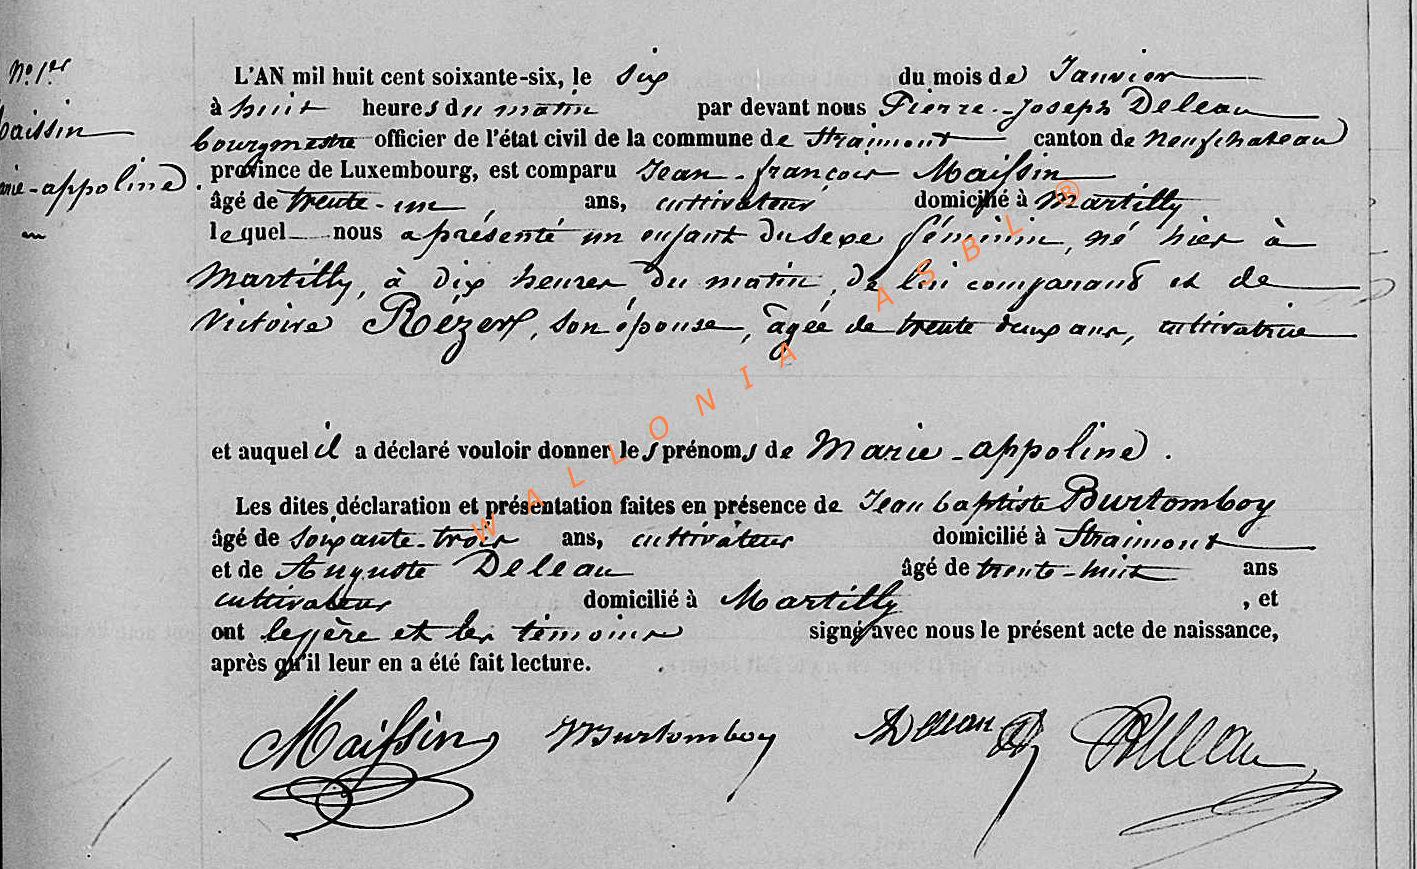 N.º 1.er
aissin
rie-appoline.
L'AN mil huit cent soixante-six, le six du mois de Janvier
à huit heures du matin par devant nous Pierre-Joseph Deleau
bourgmestre officier de l'état civil de la commune de Straimont canton de Neufchateau
province de Luxembourg, est comparu Jean-françois Maissin
âgé de trente-un, ans, cultivateur domicilié à Martilly
lequel nous a présenté un enfant du sexe féminin, né hier à
Martilly, à dix heures du matin, de lui comparant et de
Victoire Rézer, son épouse, âgée de trente deux ans, cultivatrice
et auquel il a déclaré vouloir donner les prénoms de Marie-appoline.
Les dites déclaration et présentation faites en présence de Jean baptiste Burtomboy
âgé de soixante-trois ans, cultivateur domicilié à Straimont
et de Auguste Deleau âgé de trente-huit ans
cultivateur domicilié à Martilly , et
ont le père et les témoins signé avec nous le présent acte de naissance,
après qu'il leur en a été fait lecture.
Maissin Burtomboy Deleau Deleau
WALLONIA ASBL ®